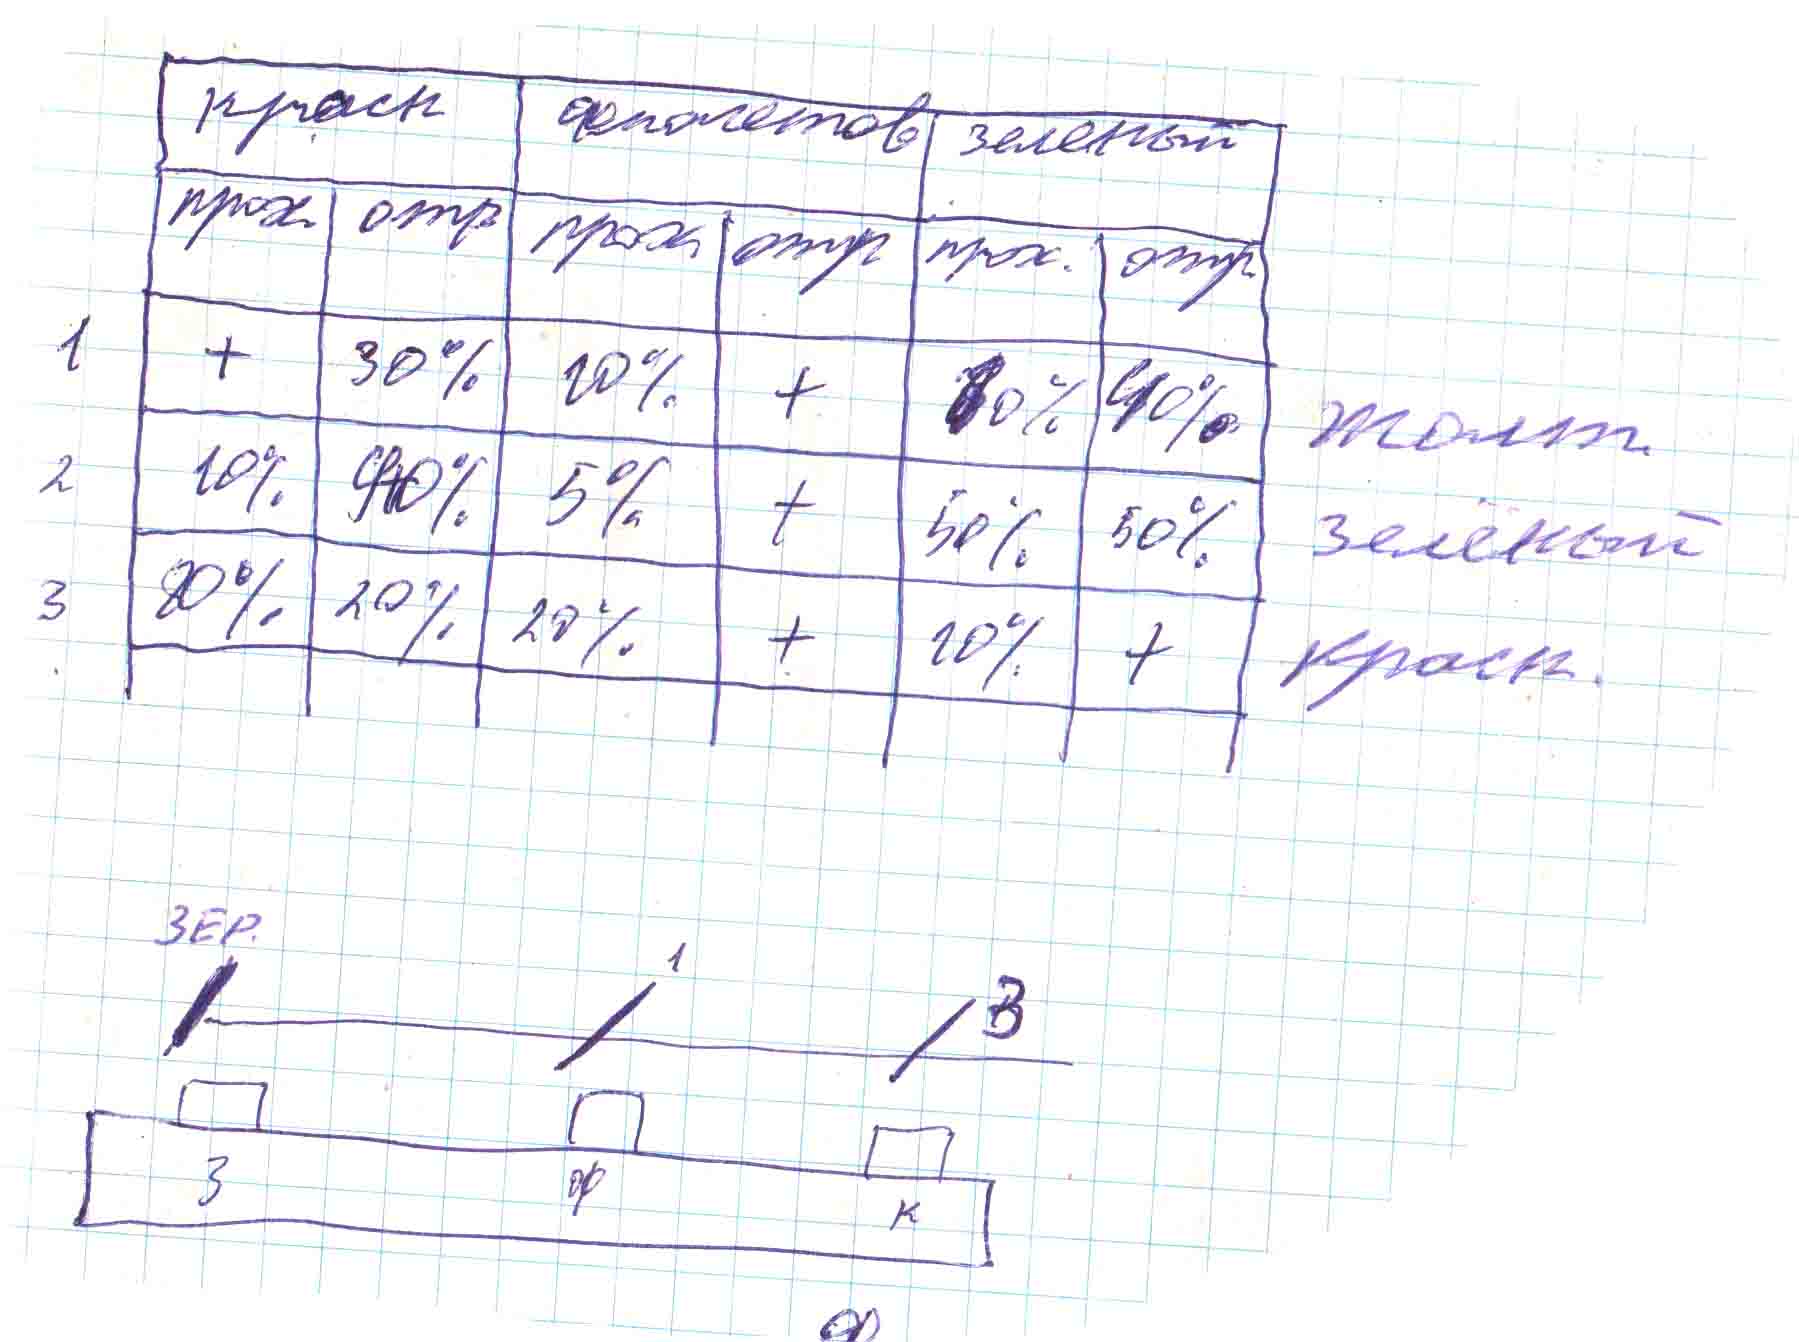 красн фиолетов зеленый
прох. отр прох. отр прох. отр
1 + 30% 10% + 80% 40% желт.
2 10% 40% 5% + 50% 50% зелёный
3 80% 20% 20% + 10% + красн.
ЗЕР. 1 3
З ф к
Ф